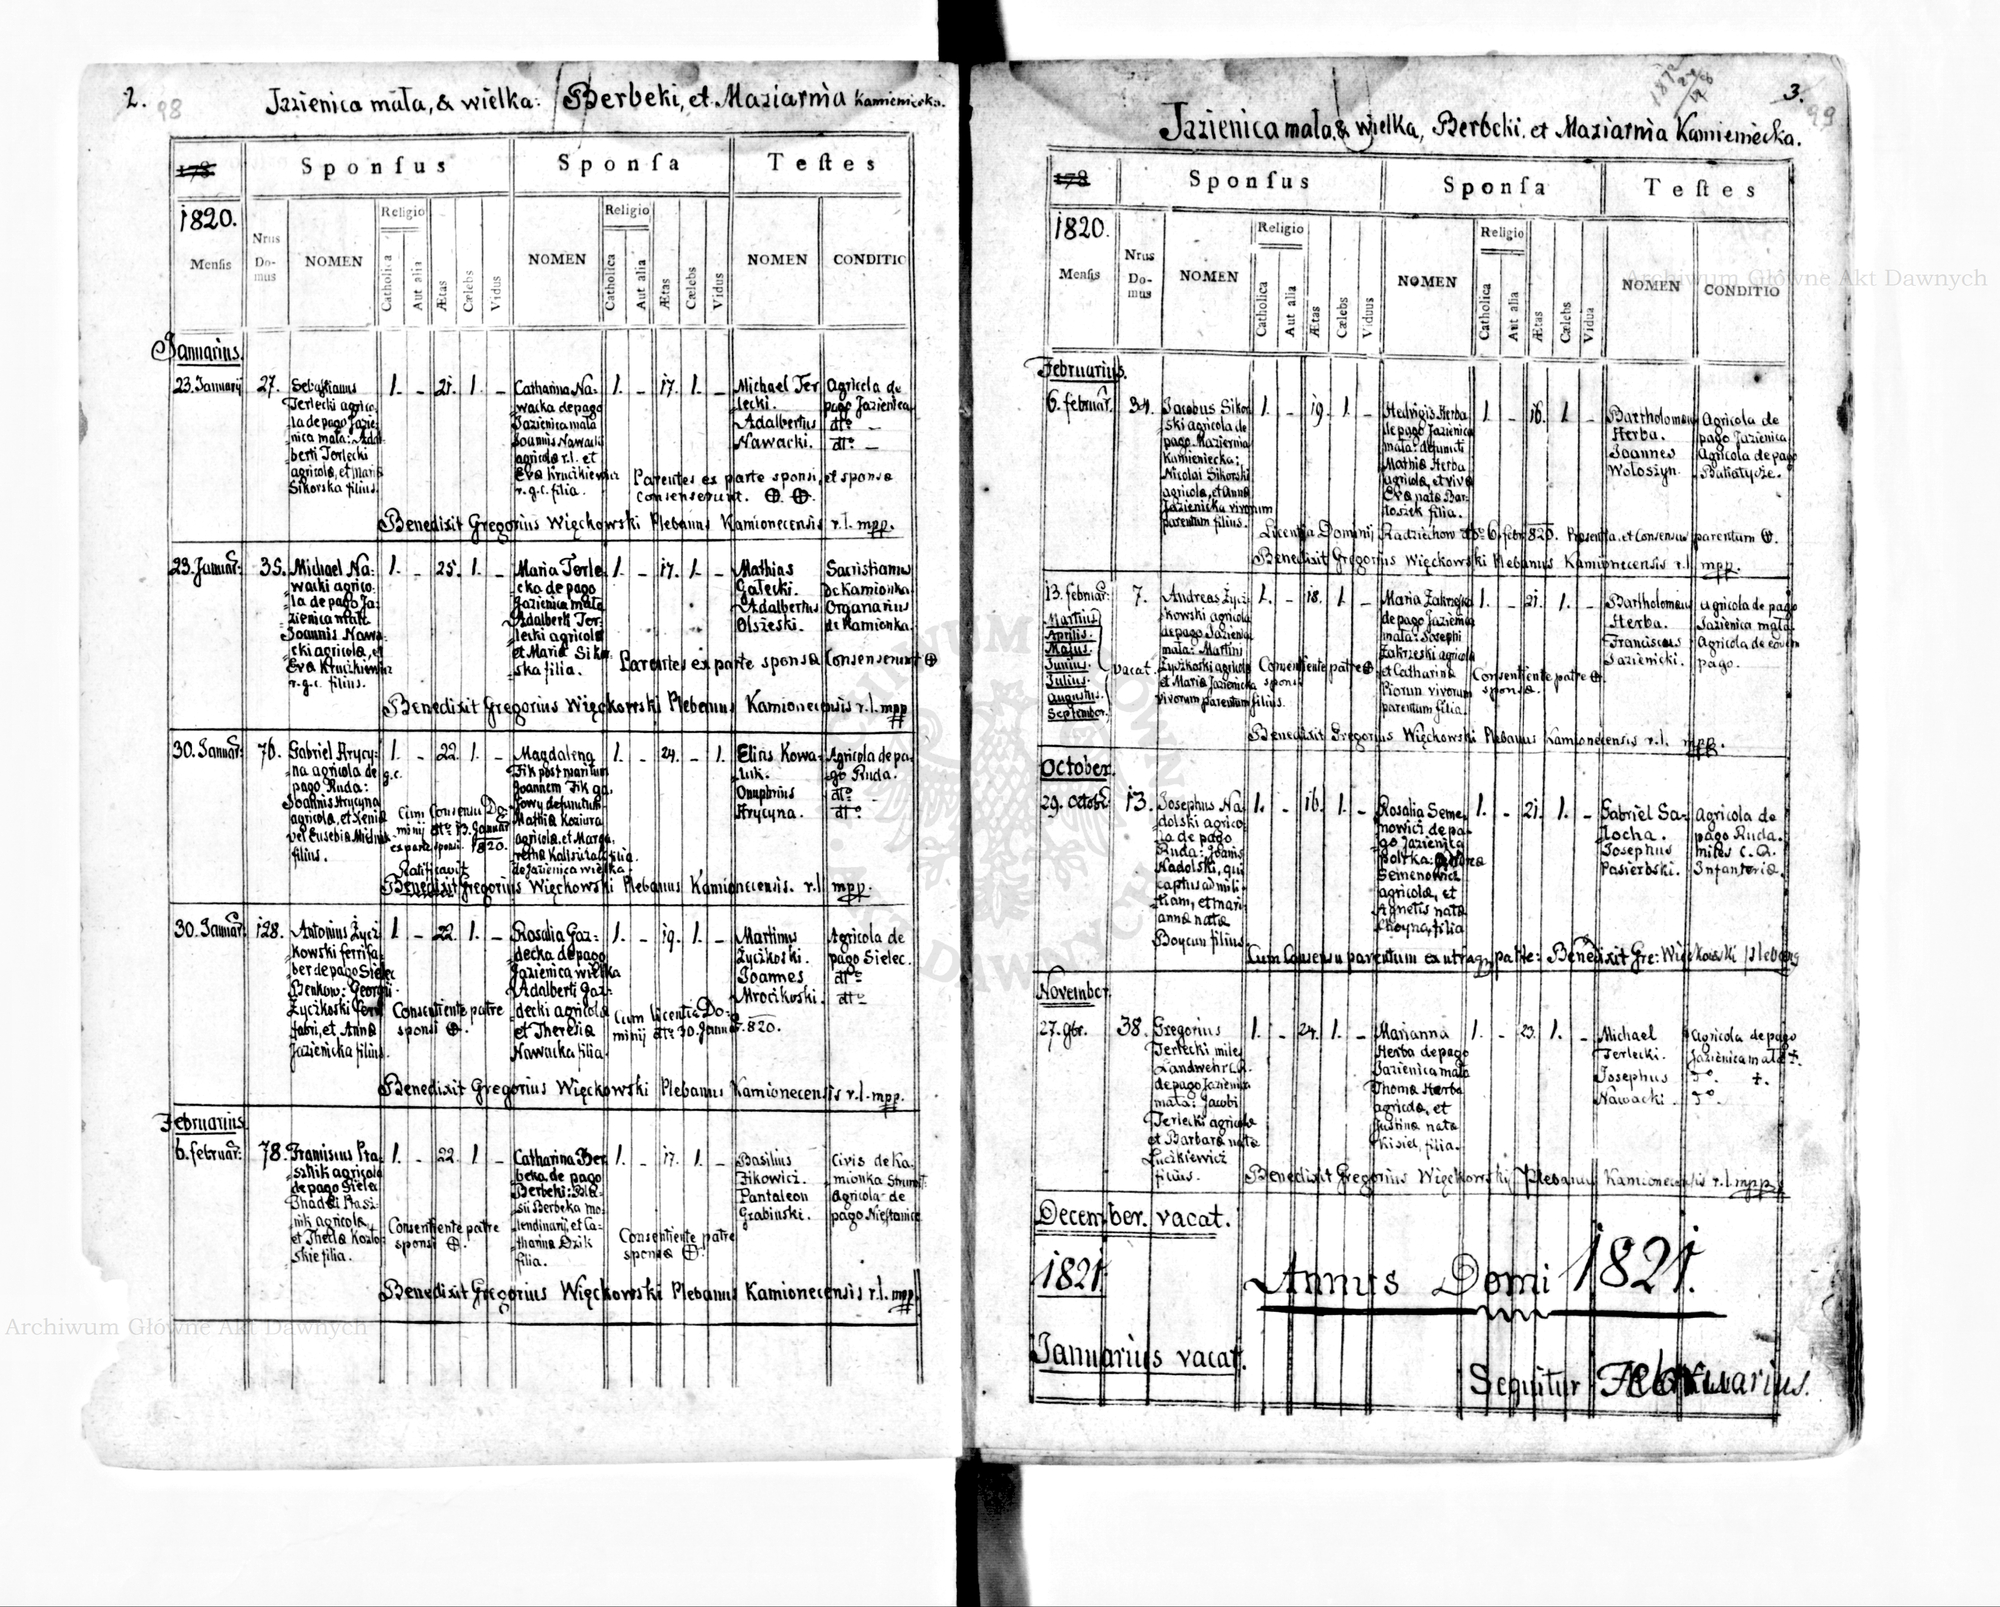 2. 98
Jazienica mała, & wielka: Berbeki, et Maziarnia Kamieniecka.
178
Sponſus
Sponſa
Teſtes
1820.
Menſis
Nrus Do-mus
NOMEN
Religio
Catholica
Aut alia
Ætas
Cælebs
Vidus
NOMEN
Religio
Catholica
Aut alia
Ætas
Cælebs
Vidus
NOMEN
CONDITIO
Januarius.
23. Januarij
27.
Sebastianus
Terlecki agrico-
la de pago Jazie-
nica mała: Adal-
berti Terlecki
agricolæ, et Maria
Sikorska filius.
1. - 21. 1. -
Catharina Na-
wacka de pago
Jazienica mała
Joannis Nawacki
agricolæ r.l. et
Eva Kruczkiewicz
r.g.c. filia.
1. - 17. 1. -
Michael Ter
lecki.
Adalbertus
Nawacki.
Agricola de
pago Jazienica
dtto -
dtto -
Parentes ex parte sponsi, et sponsæ
consenserunt.
Benedixit Gregorius Więckowski Plebanus Kamionecensis r.l. mpp.
23. Januar:
35.
Michael Na-
wacki agrico-
la de pago Ja-
zienica mała
Joannis Nawa-
cki agricolæ, et
Eva Kruczkiewicz
r.g.c. filius.
1. - 25. 1. -
Maria Terle
cka de pago
Jazienica mała
Adalberti Ter-
lecki agricolæ
et Maria Sikor
ska filia.
1. - 17. 1. -
Mathias
Gałecki.
Adalbertus
Olszeski.
Sacristianus
de Kamionka
Organarius
de Kamionka.
Parentes ex parte sponsæ Consenserunt
Benedixit Gregorius Więckowski Plebanus Kamionecensis r.l. mpp
30. Januar:
76.
Gabriel Hrycy-
na agricola de
pago Ruda:
Joannis Hrycyna
agricolæ, et Xenia
vel Eusebia
filius.
1. - 22. 1. -
g.c.
Magdalena
Fik post maritum
Joannem Fik ga
jowy defunctum
Mathiæ Koziura
agricolæ, et Marga
retha filia
de Jazienica wielka
1. - 24. - 1.
Elias Kowa-
luk.
Onuphrius
Hrycyna.
Agricola de pa-
go Ruda.
dtto -
dtto
Cum Consensu Do-
minij dtto 13. Januar
ex parte sponsi. 1820.
Ratificavit
Benedixit Gregorius Więckowski Plebanus Kamionecensis. r.l. mpp.
30. Januar:
128.
Antonius Życz
kowski ferrifa-
ber de pago Sielec
Benkow: Georgii
Życzkoski ferri
fabri, et Anna
Jazienicka filius.
1. - 22. 1. -
Rosalia Gaz-
decka de pago
Jazienica wielka
Adalberti Gaz-
decki agricolæ
et Theresia
Nawacka filia
1. - 19. 1. -
Martinus
Życzkoski.
Joannes
Mroczkoski.
Agricola de
pago Sielec.
dtto
dtto
Consentiente patre
sponsi
Cum licentia Do-
minij dtto 30. Januar. 820.
Benedixit Gregorius Więckowski Plebanus Kamionecensis r.l. mpp.
Februarius.
6. februar:
78.
Franciscus Pta-
sznik agricola
de pago Sielec
Thadæi Ptasz-
nik agricolæ
et Thecla Kozło-
skie filia.
1. - 22. 1. -
Catharina Ber
beka de pago
Berbeki: Bla-
sii Berbeka mo-
lendinarij, et Ca-
tharina Dzik
filia.
1. - 17. 1. -
Basilius
Fikowicz.
Pantaleon
Grabinski.
Civis de Ka-
mionka Strumił.
Agricola de
pago Niestanice
Consentiente patre
sponsi
Consentiente patre
sponsæ
Benedixit Gregorius Więckowski Plebanus Kamionecensis r.l. mpp
3. 99
Jazienica mała, & wielka, Berbeki, et Maziarnia Kamieniecka.
178
Sponſus
Sponſa
Teſtes
1820.
Menſis
Nrus Do-mus
NOMEN
Religio
Catholica
Aut alia
Ætas
Cælebs
Viduus
NOMEN
Religio
Catholica
Aut alia
Ætas
Cælebs
Vidua
NOMEN
CONDITIO
Februarius.
6. februar.
34.
Jacobus Sikor
ski agricola de
pago Maziernia
Kamieniecka:
Nicolai Sikorski
agricolæ, et Anna
Jazienicka vivorum
parentum filius.
1. - 19. 1. -
Hedvigis Herba
de pago Jazienica
mała: defuncti
Mathiæ Herba
agricolæ, et viva
Eva nata Bar-
toszek filia.
1. - 16. 1. -
Bartholomeus
Herba.
Joannes
Wołoszyn.
Agricola de
pago Jazienica
Agricola de pago
Batiatycze.
Licentia Dominij Radziechow dtto 6. febr: 820. Præsentia, et Consensus parentum
Benedixit Gregorius Więckowski Plebanus Kamionecensis r.l. mpp.
13. februar:
7.
Andreas Życz
kowski agricola
de pago Jazienica
mała: Martini
Życzkoski agricolæ
et Maria Jazienicka
vivorum parentum filius.
1. - 18. 1. -
Maria Zakrzeska
de pago Jazienica
mała: Josephi
Zakrzeski agricolæ
et Catharina
Piorun vivorum
parentum filia.
1. - 21. 1. -
Bartholomeus
Herba.
Franciscus
Jazienicki.
Agricola de pago
Jazienica mała
Agricola de eodem
pago.
Martius
Aprilis.
Majus
Junius
Julius.
Augustus.
September.
vacat.
Consentiente patre
sponsi
Consentiente patre
sponsæ.
Benedixit Gregorius Więckowski Plebanus Kamionecensis r.l. mpp.
October.
29. Octobr
13.
Josephus Na-
dolski agrico-
la de pago
Ruda: Joanis
Nadolski, qui
captus ad mili-
tiam, et mari-
anna nata
Boycun filius.
1. - 16. 1. -
Rosalia Seme-
nowicz de pa-
go Jazienica
polska: Andrea
Semenowicz
agricolæ, et
Agnetis nata
Choyna, filia
1. - 21. 1. -
Gabriel Sa-
łocha.
Josephus
Pasierbski.
Agricola de
pago Ruda.
miles C.R.
Infanteriæ.
Cum Consensu parentum ex utraq parte: Benedixit Gre: Więckowski Plebang
November.
27. 9br.
38.
Gregorius
Terlecki miles
Landwehr C.R.
de pago Jazienica
mała: Jacobi
Terlecki agricolæ
et Barbara nata
Łucikiewicz
filius.
1. - 24. 1. -
Marianna
Herba de pago
Jazienica mała
Thomæ Herba
agricolæ, et
Justina nata
Kisiel, filia.
1. - 23. 1. -
Michael
Terlecki.
Josephus
Nawacki.
Agricola de pago
Jazienica mała ‡.
do. ‡.
do.
Benedixit Gregorius Więckowski Plebanus Kamionecensis r.l. mpp.
December. vacat.
1821.
Annus Domi 1821.
Januarius vacat.
Sequitur Februarius.
Archiwum Główne Akt Dawnych
Archiwum Główne Akt Dawnych